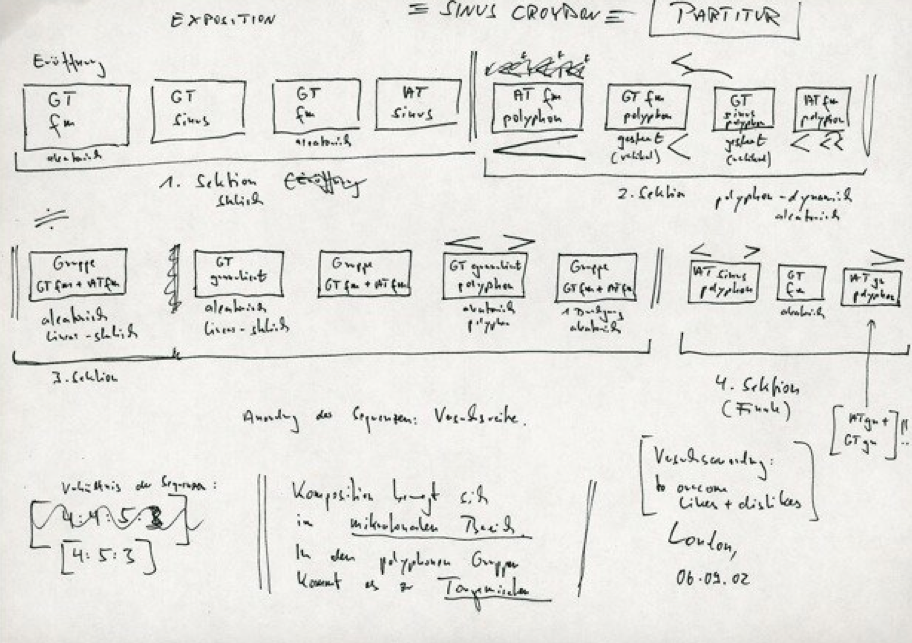 EXPOSITION
= SINUS CROYDON =
PARTITUR
Eröffnung
GT
fm
aleatorisch
GT
sinus
GT
fm
aleatorisch
AT
sinus
1. Sektion
statisch
AT fm
polyphon
GT fm
polyphon
gestreut
(vertikal)
GT
sinus
polyphon
gestreut
(vertikal)
AT fm
polyphon
2. Sektion polyphon - dynamisch
aleatorisch
Gruppe
GT fm + AT fm
aleatorisch
linear - statisch
GT
granuliert
aleatorisch
linear - statisch
Gruppe
GT fm + AT fm
GT granuliert
polyphon
aleatorisch
polyphon
Gruppe
GT fm + AT fm
aleatorisch
3. Sektion
AT sinus
polyphon
GT
fm
aleatorisch
AT gn
polyphon
4. Sektion
(Finale)
[ATgn +
GTgn]!!
Anordnung der Sequenzen: Versuchsreihe.
Verhältnis der Sequenzen:
[4:4:5:3]
[4:5:3]
Komposition bewegt sich
im mikrotonalen Bereich
In den polyphonen Gruppen
kommt es zu Tongemischen
Versuchsanordnung:
to overcome
likes + dislikes
London,
06.09.02